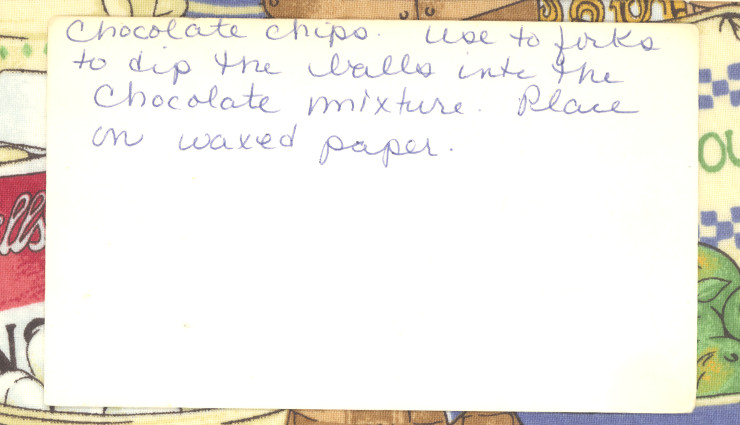 Chocolate chips. Use to forks
to dip the balls into the
Chocolate mixture. Place
on waxed paper.